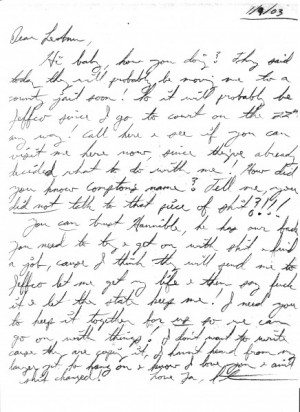 1/9/03
Dear LeAnn,
Hi baby, how you doing? They said
today they will probably be moving me to a
county jail soon! So it will probably be
Jeffco since I go to court on the 22nd
any way! Call here & see if you can
visit me here now, since they've already
decided what to do with me! How did
you know Compton's name? Tell me, you
did not talk to that piece of shit?!?!!
You can trust Hannible, he has our back
you need to try & get on with shit - find
a job, cause I think they will send me to
Jeffco let me get my life & then say fuck
it & let the state keep me! I need you
to keep it together for us so we can
go on with things! I don't want to write
cause they are copying it, I havn't heard from my
lawyer yet, so hang on & know I love you & ain't
shit changed! Love Ya,